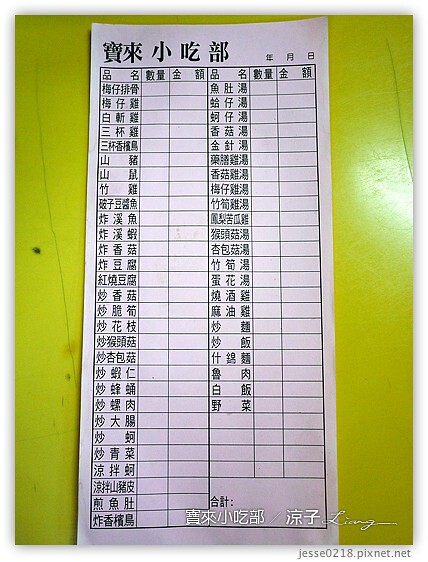 寶來小吃部
年 月 日
品名 數量 金額 品名 數量 金額
梅仔排骨 魚肚湯
梅仔雞 蛤仔湯
白斬雞 蚵仔湯
三杯雞 香菇湯
三杯香檳鳥 金針湯
山豬 藥膳雞湯
山鼠 香菇雞湯
竹雞 梅仔雞湯
破子豆醬魚 竹筍雞湯
炸溪魚 鳳梨苦瓜雞
炸溪蝦 猴頭菇湯
炸香菇 杏包菇湯
炸豆腐 竹筍湯
紅燒豆腐 蛋花湯
炒香菇 燒酒雞
炒脆筍 麻油雞
炒花枝 炒麵
炒猴頭菇 炒飯
炒杏包菇 什錦麵
炒蝦仁 魯肉
炒蜂蛹 白飯
炒螺肉 野菜
炒大腸
炒蚵
炒青菜
涼拌蚵
涼拌山豬皮
煎魚肚 合計:
炸香檳鳥
寶來小吃部 / 涼子 Liang
jesse0218.pixnet.net